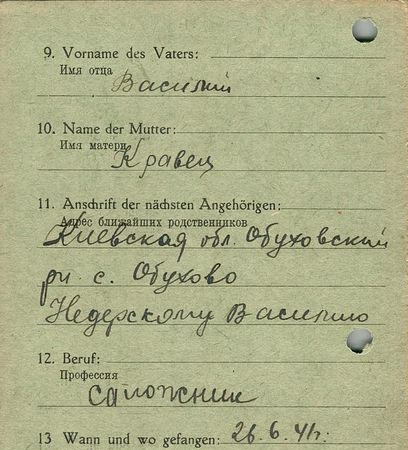 9. Vorname des Vaters:
Имя отца
Василий
10. Name der Mutter:
Имя матери
Кравец
11. Anschrift der nächsten Angehörigen:
Адрес ближайших родственников
Киевская обл. Обуховский
рн с. Обухово
Недерскому Василию
12. Beruf:
Профессия
сапожник
13 Wann und wo gefangen: 26.6.41г.